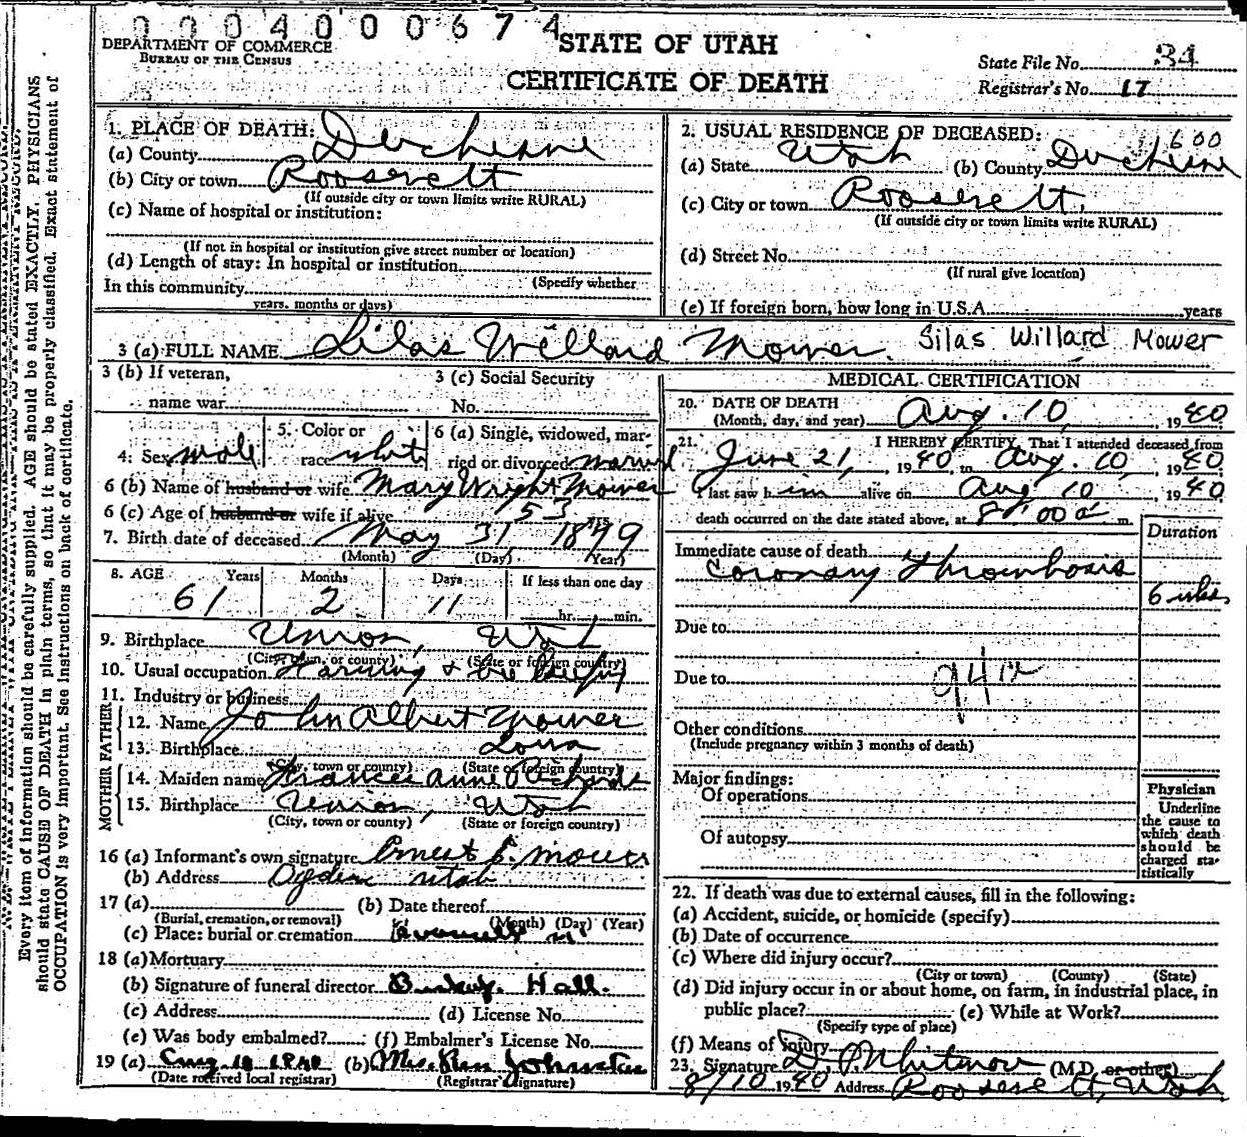 0004000674
DEPARTMENT OF COMMERCE
BUREAU OF THE CENSUS
STATE OF UTAH
CERTIFICATE OF DEATH
State File No. 31
Registrar's No. 17
1. PLACE OF DEATH:
(a) County Duchesne
(b) City or town Roosevelt
(If outside city or town limits write RURAL)
(c) Name of hospital or institution:
(If not in hospital or institution give street number or location)
(d) Length of stay: In hospital or institution
(Specify whether
In this community
years, months or days)
2. USUAL RESIDENCE OF DECEASED: 1600
(a) State Utah (b) County Duchesne
(c) City or town Roosevelt.
(If outside city or town limits write RURAL)
(d) Street No.
(If rural give location)
(e) If foreign born, how long in U.S.A. years
3 (a) FULL NAME Silas Willard Mower. Silas Willard Mower
3 (b) If veteran,
name war
3 (c) Social Security
No.
4. Sex male
5. Color or
race white
6 (a) Single, widowed, mar-
ried or divorced married
6 (b) Name of husband or wife Mary Wright Mower
6 (c) Age of husband or wife if alive 53 yrs
7. Birth date of deceased May 31 1879
(Month) (Day) (Year)
8. AGE Years Months Days If less than one day
61 2 11 hr. min.
9. Birthplace Union, Utah
(City, town, or county) (State or foreign country)
10. Usual occupation Farming & Bee keeping
11. Industry or business
FATHER
12. Name John Albert Mower
13. Birthplace Iowa
(City, town or county) (State or foreign country)
MOTHER
14. Maiden name Frances Anne Richards
15. Birthplace Union, Utah
(City, town or county) (State or foreign country)
16 (a) Informant's own signature Ernest E. Mower
(b) Address Ogden Utah
17 (a) (b) Date thereof
(Burial, cremation, or removal) (Month) (Day) (Year)
(c) Place: burial or cremation
18 (a) Mortuary
(b) Signature of funeral director Hall.
(c) Address (d) License No.
(e) Was body embalmed? (f) Embalmer's License No.
19 (a) Aug 10 1940 (b) Mrs. Johnston
(Date received local registrar) (Registrar's signature)
MEDICAL CERTIFICATION
20. DATE OF DEATH
(Month, day, and year) Aug. 10, 1940
21. I HEREBY CERTIFY, That I attended deceased from
June 21, 1940, to Aug. 10, 1940
I last saw him alive on Aug 10, 1940
death occurred on the date stated above, at 8:00 a m.
Duration
Immediate cause of death
Coronary Thrombosis
6 wks
Due to
Due to
94a
Other conditions
(Include pregnancy within 3 months of death)
Major findings:
Of operations
Of autopsy
Physician
Underline
the cause to
which death
should be
charged sta-
tistically
22. If death was due to external causes, fill in the following:
(a) Accident, suicide, or homicide (specify)
(b) Date of occurrence
(c) Where did injury occur?
(City or town) (County) (State)
(d) Did injury occur in or about home, on farm, in industrial place, in
public place? (e) While at Work?
(Specify type of place)
(f) Means of injury
23. Signature Whitmore (M.D. or other)
8/10 1940 Address Roosevelt, Utah
Every item of information should be carefully supplied. AGE should be stated EXACTLY. PHYSICIANS
should state CAUSE OF DEATH in plain terms, so that it may be properly classified. Exact statement of
OCCUPATION is very important. See instructions on back of certificate.